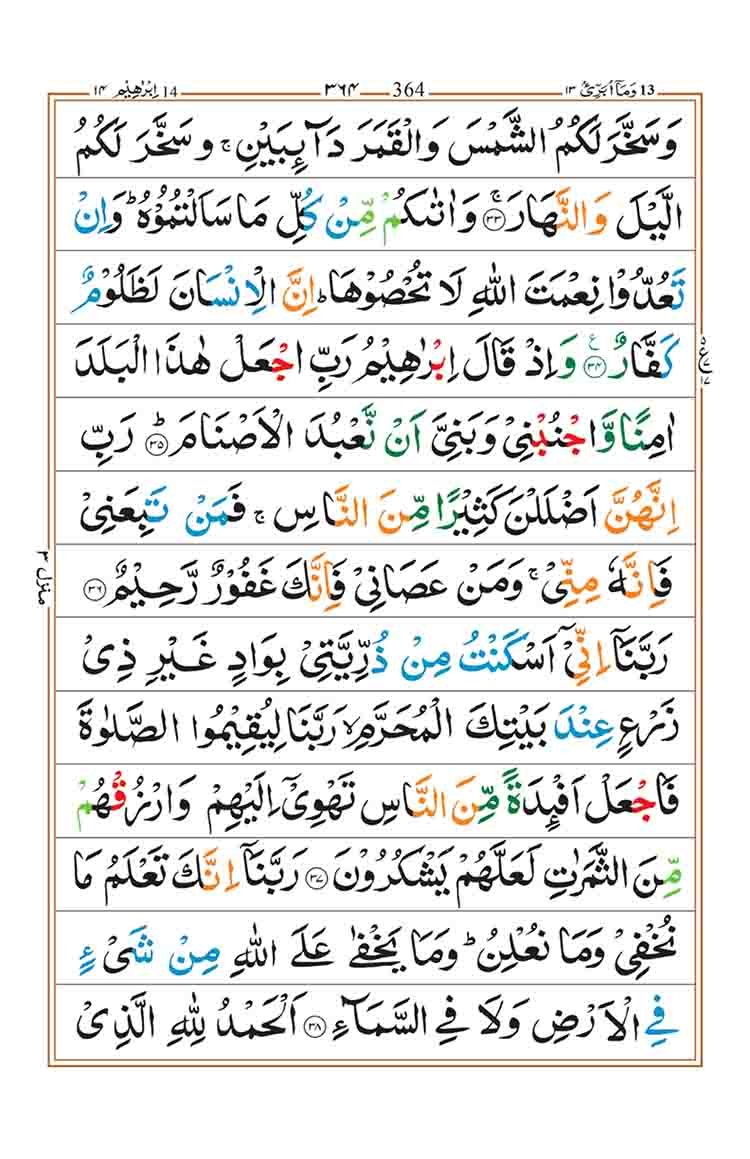 13 وَمَآ اُبَرِّئُ ١٣ 364 ٣٦۴ 14 اِبْرٰهِيْم ١۴
وَسَخَّرَ لَكُمُ الشَّمْسَ وَالْقَمَرَ دَآئِبَيْنِ ۚ وَسَخَّرَ لَكُمُ
الَّيْلَ وَالنَّهَارَ ۚ ﴿٣٣﴾ وَاٰتٰىكُمْ مِّنْ كُلِّ مَا سَاَلْتُمُوْهُ ؕ وَاِنْ
تَعُدُّوْا نِعْمَتَ اللّٰهِ لَا تُحْصُوْهَا ؕ اِنَّ الْاِنْسَانَ لَظَلُوْمٌ
كَفَّارٌ ﴿٣٤﴾ ع وَاِذْ قَالَ اِبْرٰهِيْمُ رَبِّ اجْعَلْ هٰذَا الْبَلَدَ
ع ٥ ١٧
اٰمِنًا وَّاجْنُبْنِىْ وَبَنِىَّ اَنْ نَّعْبُدَ الْاَصْنَامَ ؕ ﴿٣٥﴾ رَبِّ
اِنَّهُنَّ اَضْلَلْنَ كَثِيْرًا مِّنَ النَّاسِ ۚ فَمَنْ تَبِعَنِىْ
فَاِنَّهٗ مِنِّىْ ۚ وَمَنْ عَصَانِىْ فَاِنَّكَ غَفُوْرٌ رَّحِيْمٌ ﴿٣٦﴾
منزل ٣
رَبَّنَاۤ اِنِّىْۤ اَسْكَنْتُ مِنْ ذُرِّيَّتِىْ بِوَادٍ غَيْرِ ذِىْ
زَرْعٍ عِنْدَ بَيْتِكَ الْمُحَرَّمِ ۙ رَبَّنَا لِيُقِيْمُوا الصَّلٰوةَ
فَاجْعَلْ اَفْئِدَةً مِّنَ النَّاسِ تَهْوِىْۤ اِلَيْهِمْ وَارْزُقْهُمْ
مِّنَ الثَّمَرٰتِ لَعَلَّهُمْ يَشْكُرُوْنَ ﴿٣٧﴾ رَبَّنَاۤ اِنَّكَ تَعْلَمُ مَا
نُخْفِىْ وَمَا نُعْلِنُ ؕ وَمَا يَخْفٰى عَلَى اللّٰهِ مِنْ شَىْءٍ
فِى الْاَرْضِ وَلَا فِى السَّمَآءِ ﴿٣٨﴾ اَلْحَمْدُ لِلّٰهِ الَّذِىْ